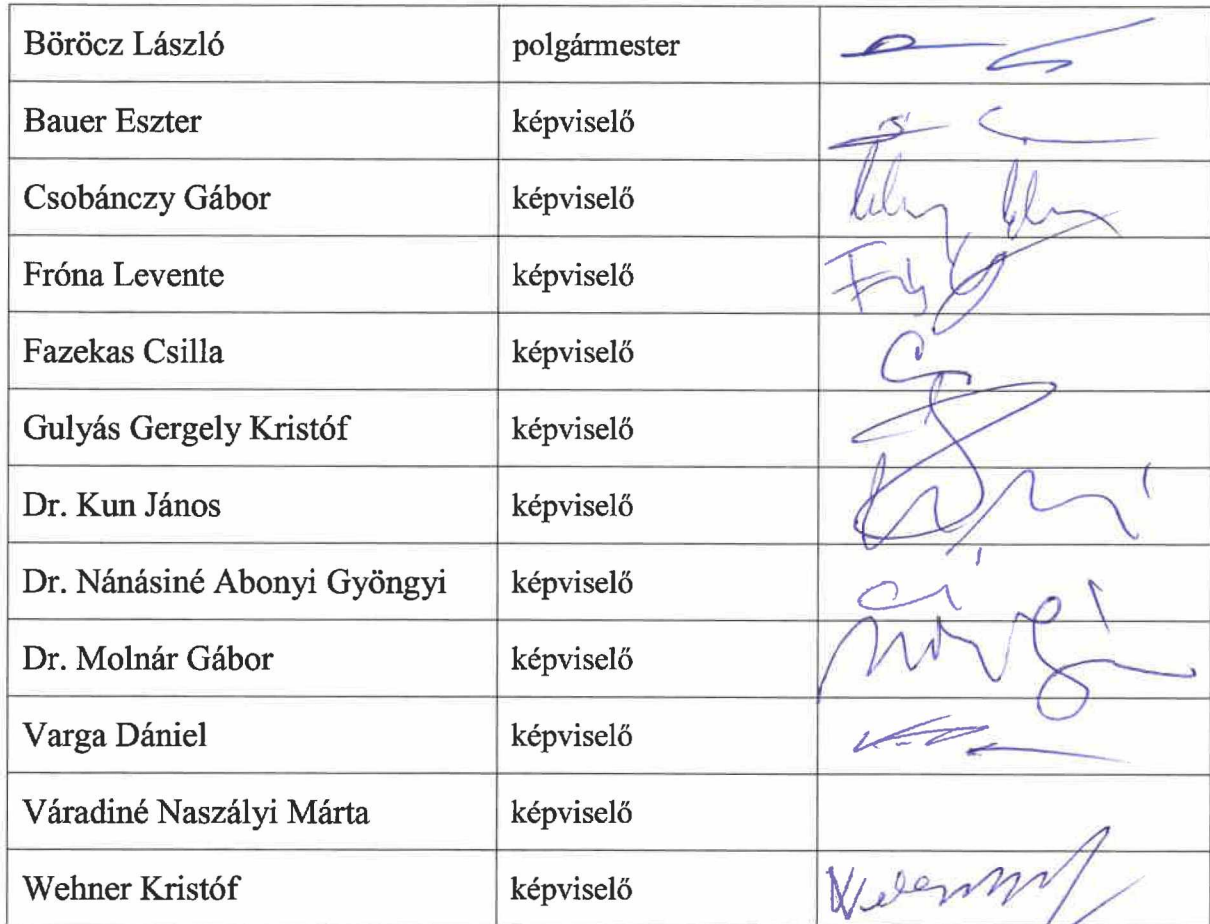 Böröcz László polgármester
Bauer Eszter képviselő
Csobánczy Gábor képviselő
Fróna Levente képviselő
Fazekas Csilla képviselő
Gulyás Gergely Kristóf képviselő
Dr. Kun János képviselő
Dr. Nánásiné Abonyi Gyöngyi képviselő
Dr. Molnár Gábor képviselő
Varga Dániel képviselő
Váradiné Naszályi Márta képviselő
Wehner Kristóf képviselő